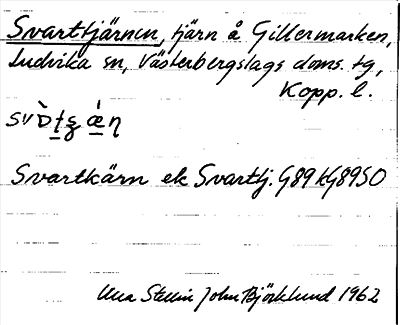 Svarttjärnen, tjärn å Gillermarken,
Ludvika sn, Västerbergslags doms. tg,
Kopp. l.
Svartkärn ek Svarttj. G89 kG89SO
Stellin John Björklund 1962